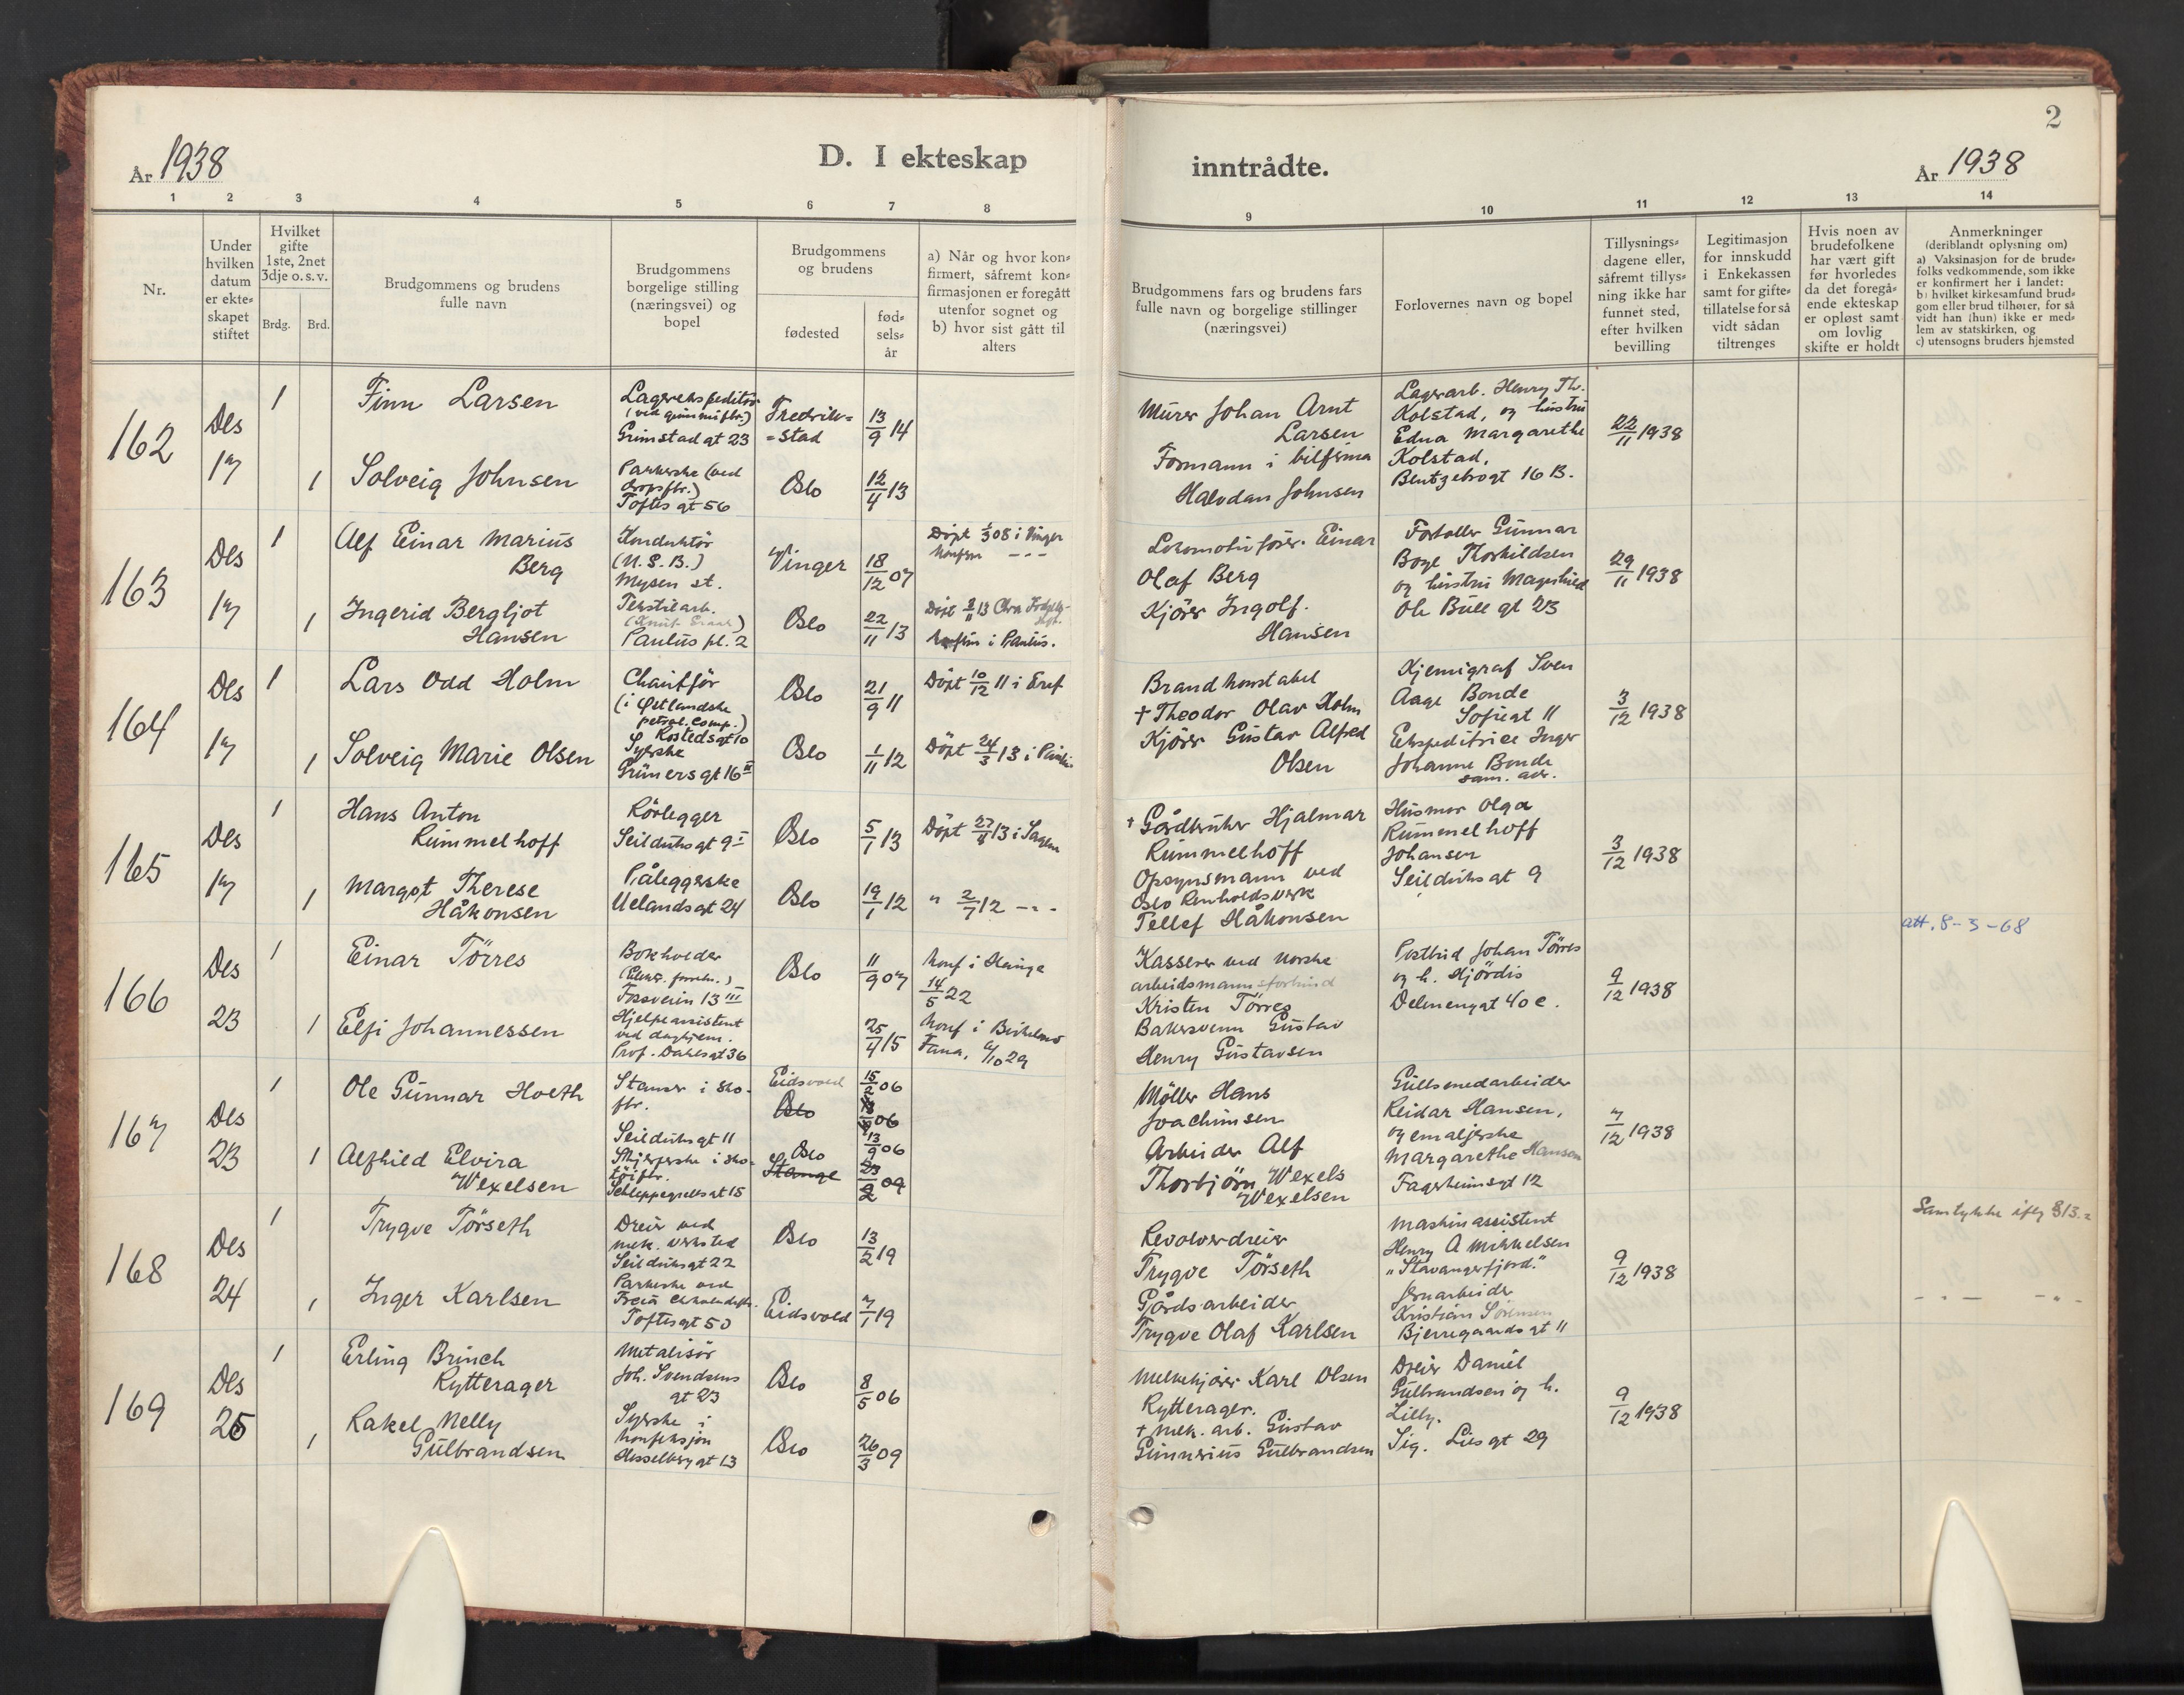 2
År 1938
D. I ekteskap
inntrådte.
År 1938
1 2 3 4 5 6 7 8
9 10 11 12 13 14
Nr.
Under hvilken datum er ekte=skapet stiftet
Hvilket gifte 1ste, 2net 3dje o. s. v.
Brdg. Brd.
Brudgommens og brudens fulle navn
Brudgommens borgelige stilling (næringsvei) og bopel
Brudgommens og brudens
fødested
fød=sels=år
a) Når og hvor kon=firmert, såfremt kon=firmasjonen er foregått utenfor sognet og b) hvor sist gått til alters
Brudgommens fars og brudens fars fulle navn og borgelige stillinger (næringsvei)
Forlovernes navn og bopel
Tillysnings=dagene eller, såfremt tillys=ning ikke har funnet sted, efter hvilken bevilling
Legitimasjon for innskudd i Enkekassen samt for gifte=tillatelse for så vidt sådan tiltrenges
Hvis noen av brudefolkene har vært gift før hvorledes da det foregå=ende ekteskap er opløst samt om lovlig skifte er holdt
Anmerkninger (deriblandt oplysning om) a) Vaksinasjon for de brude=folks vedkommende, som ikke er konfirmert her i landet: b) hvilket kirkesamfund brud=gom eller brud tilhører, for så vidt han (hun) ikke er med=lem av statskirken, og c) utensogns bruders hjemsted
162
Des 17
1
Finn Larsen
Lagerekspeditør
(ved gummifbr.)
Grimstad gt 23
Fredrik=
=stad
13/9 14
Murer Johan Arnt
Larsen
Lagerarb. Henry Th.
Kolstad, og hustru
Edna Margarethe
Kolstad,
Bentzebrogt 16 B.
22/11 1938
1
Solveig Johnsen
Pakkerske (ved
dropsfbr.)
Toftes gt 56
Oslo
12/4 13
Formann i bilfirma
Halvdan Johnsen
163
Des 17
1
Alf Einar Marius
Berg
Konduktør
(N.S.B.)
Mysen st.
Vinger
18/12 07
Döpt 1/3 08 i Vinger
Konfirm - - -
Lokomotivfører. Einar
Olaf Berg
Forvalter Gunnar
Boye Thorkildsen
og hustru Magnhild
Ole Bull gt 23
29/11 1938
1
Ingerid Bergljot
Hansen
Tekstilarb.
Paulus pl. 2
Oslo
22/11 13
Konfirm i Paulus.
Kjörer Ingolf.
Hansen
164
Des 17
1
Lars Odd Holm
Chauffør
(i Østlandske
petrol. Comp.)
Rostedsgt 10
Oslo
21/9 11
Döpt 10/12 11 i
Brandkonstabel
† Theodor Olav Holm
Kjemigraf Sven
Aage Bonde
Sofiegt 11
Ekspeditrice Inger
Johanne Bonde
sam. adr.
3/12 1938
1
Solveig Marie Olsen
Syerske
Grünersgt 16 III
Oslo
1/11 12
Döpt 24/3 13 i
Kjörer Gustav Alfred
Olsen
165
Des 17
1
Hans Anton
Rummelhoff
Rörlegger
Seilduksgt 9 I
Oslo
5/1 13
Döpt 27/4 13 i Sagene
† Gårdbruker Hjalmar
Rummelhoff
Husmor Olga
Rummelhoff
Johansen
Seilduksgt 9
3/12 1938
1
Margot Therese
Håkonsen
Påleggerske
Uelandsgt 24
Oslo
19/1 12
" 2/7 12 - " -
Opsynsmann ved
Oslo Renholdsverk
Tellef Håkonsen
166
Des 23
1
Einar Törres
Bokholder
Fossveien 13 III
Oslo
11/9 07
Konf i Hauge
14/5 22
Kasserer ved Norske
arbeidsmannsforbund
Kristen Törres
Postbud Johan Törres
og h. Hjördis
Delenenggt 40 c.
9/12 1938
att. 8-3-68
1
Elfi Johannessen
Hjelpeassistent
ved daghjem.
Prof. Dahlsgt 36
25/4 15
Konf i Birkeland
Fana, 6/10 29
Bakersvenn Gustav
Henry Gustavsen
167
Des 23
1
Ole Gunnar Hoeth
Stanser i sko-
fbr.
Seilduksgt 11
Eidsvold
Oslo
15/2 06
06
Möller Hans
Joachimsen
Gullsmedarbeider
Reidar Hansen,
og emaljerske
Margarethe Hansen
Fagerheimsgt 12
7/12 1938
1
Alfhild Elvira
Wexelsen
Skjærerske i sko-
töifbr.
Schleppegrellsgt 15
Oslo
Stange
13/9 06
09
Arbeider Alf
Thorbjörn Wexels
Wexelsen
168
Des 24
1
Trygve Törseth
Dreier ved
mek. verksted
Seilduksgt 22
Oslo
13/2 19
Revolverdreier
Trygve Törseth
Maskinassistent
Henry A Mikkelsen
"Stavangerfjord."
Jernarbeider
Kristian Sörensen
Bjerregaardsgt 11
9/12 1938
Samtykke iflg §13.2
1
Inger Karlsen
Pakkerske ved
Freia chokoladefbr.
Toftesgt 50
Eidsvold
7/1 19
Gårdsarbeider
Trygve Olaf Karlsen
- " - - " -
169
Des 25
1
Erling Brinch
Rytterager
Metalisør
Joh. Svendsens
gt 23
Oslo
8/5 06
Melkekjører Karl Olsen
Rytterager.
Dreier Daniel
Gulbrandsen og h.
Lilly.
Sig. Lies gt 29
9/12 1938
1
Rakel Nelly
Gulbrandsen
Syerske i
konfeksjon
Hesselberggt 13
Oslo
26/3 09
† Mek. arb. Gustav
Gunnerius Gulbrandsen